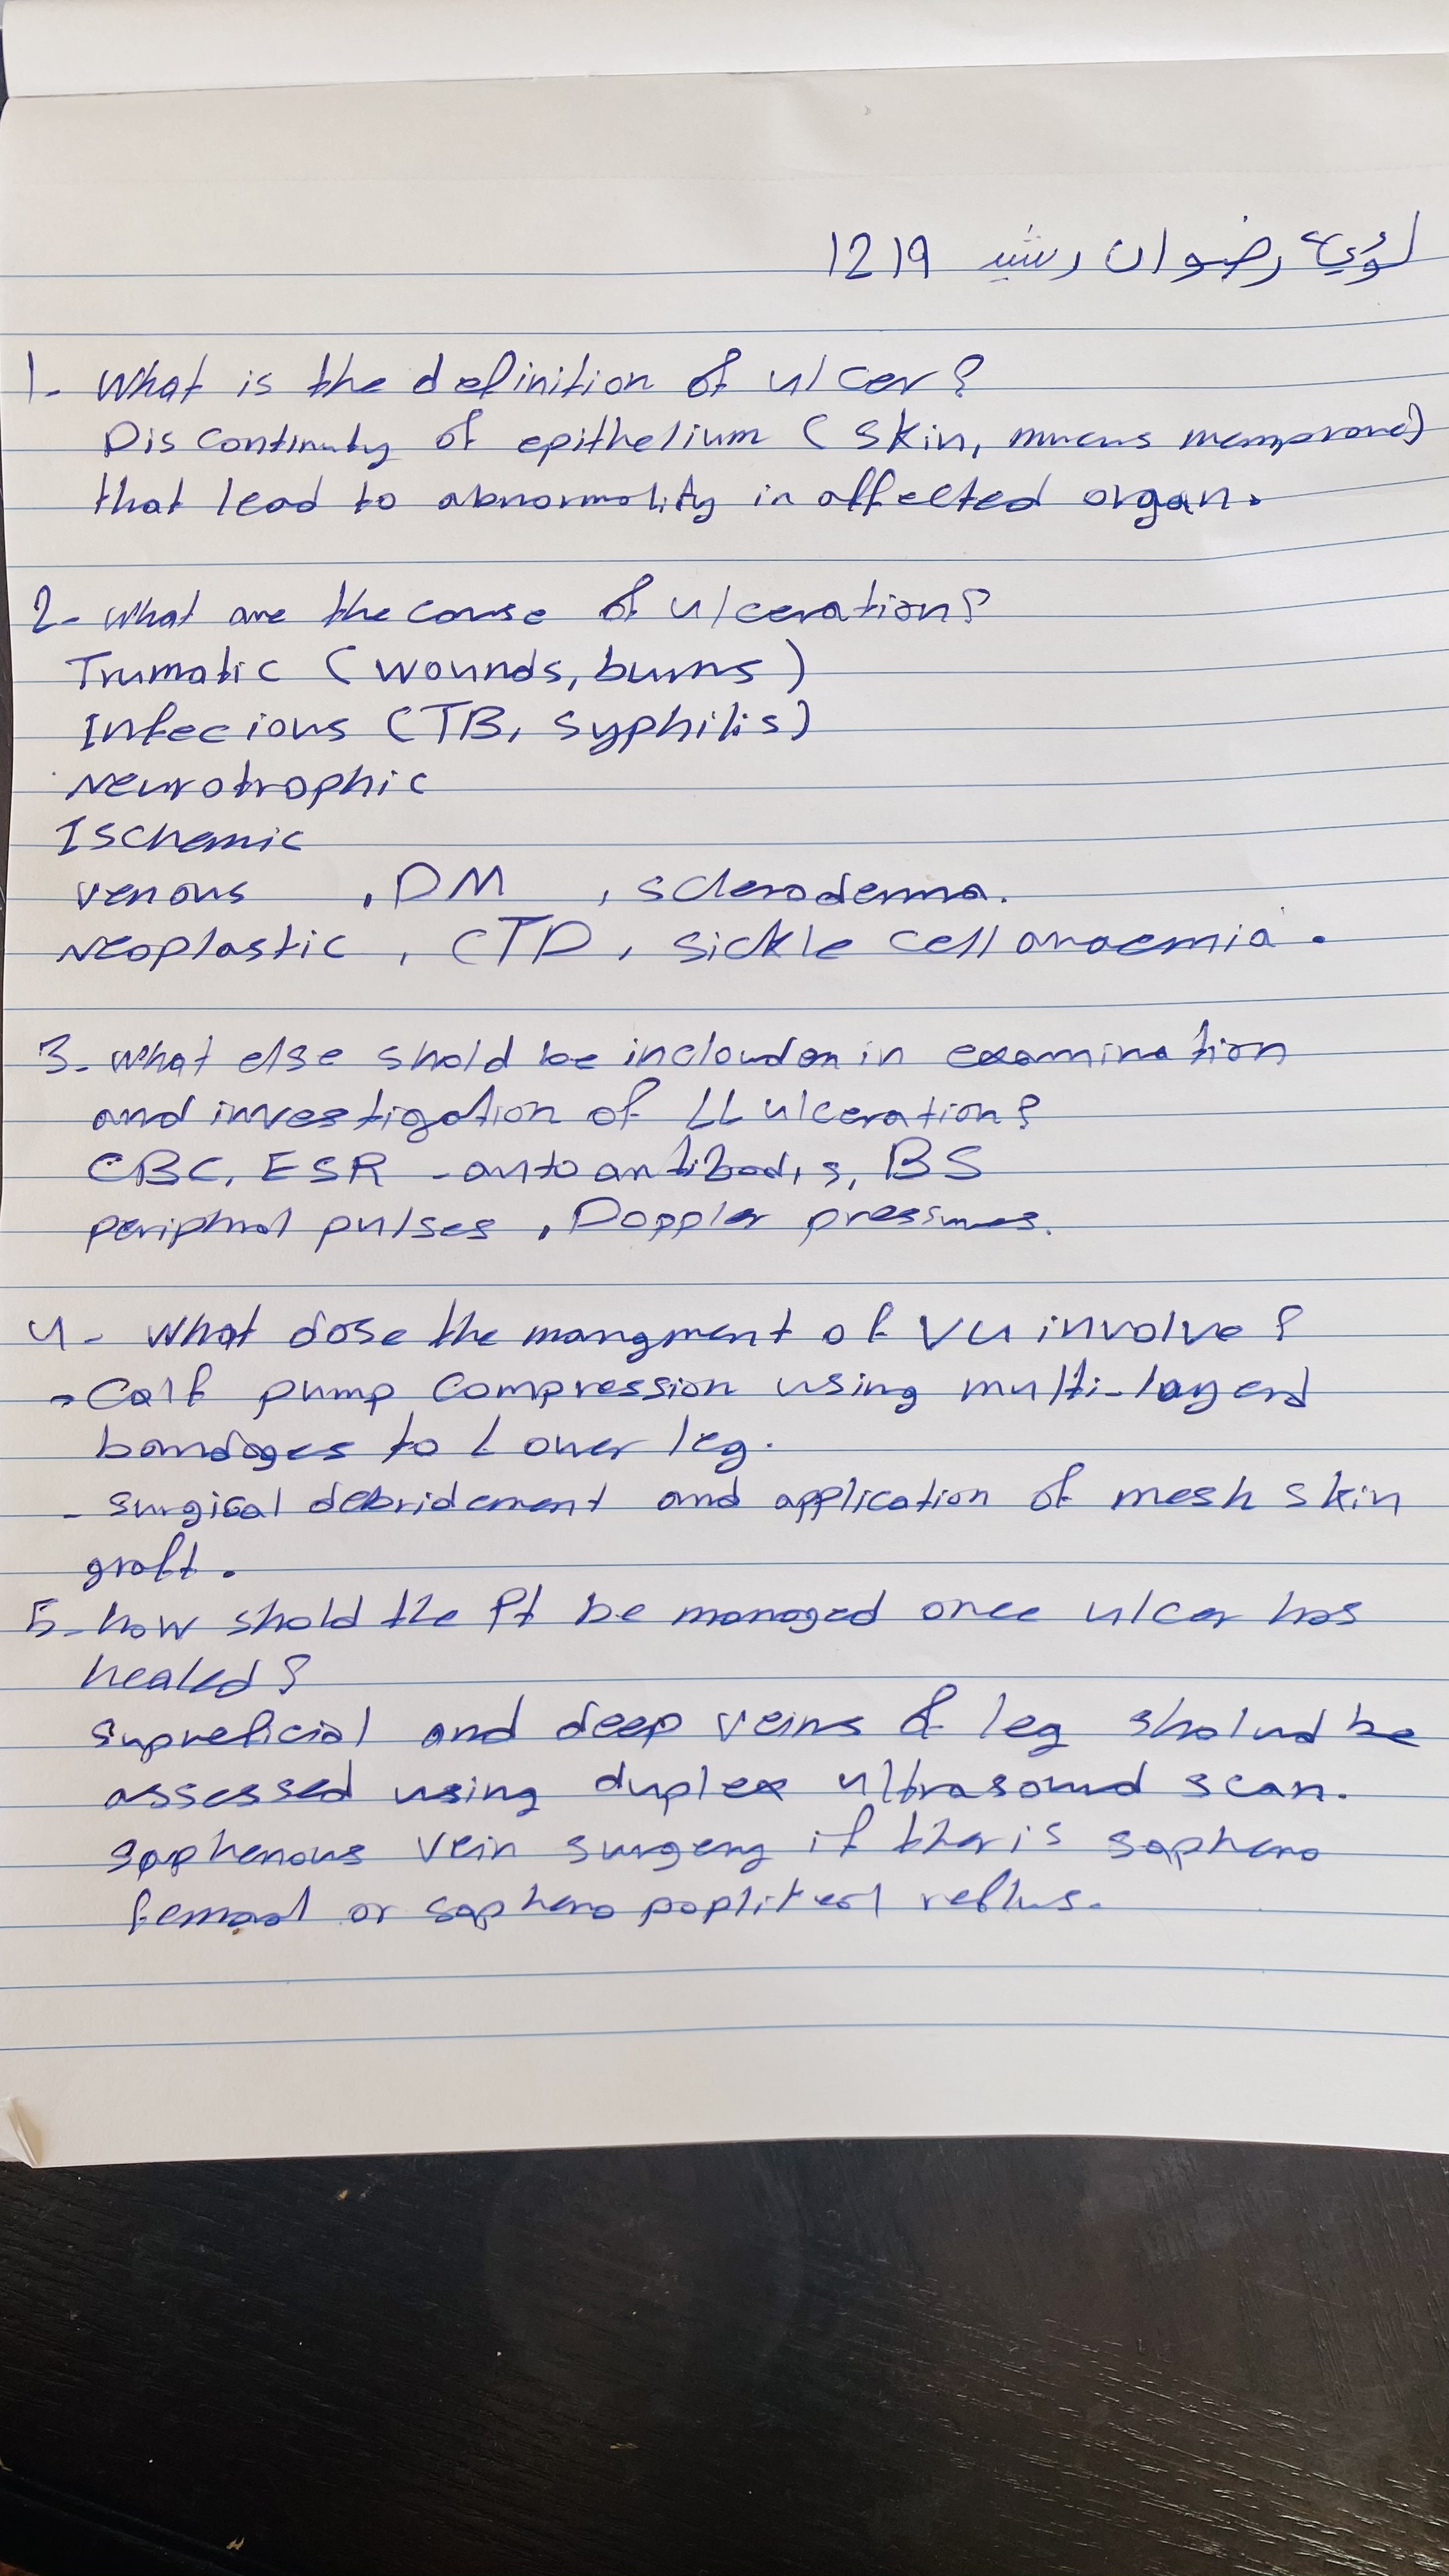 لؤيء رضوان رشيد 1219
1- What is the definition of ulcer?
Discontinuty of epithelium (skin, mucus memprane)
that lead to abnormality in affected organ.
2- What are the couse of ulceration?
Trumatic (wounds, burns)
Infecious (TB, Syphilis)
Neurotrophic
Ischemic
venous , DM , scleroderma.
Neoplastic , CTD , sickle cell anaemia.
3- What else shold be in examination
and investigation of LL ulceration?
CBC, ESR - auto antibodis, BS
periphral pulses , Doppler pressures.
4- What dose the mangment of VU involve?
- Calf pump compression using multi-layerd
bandages to Lower leg.
- surgical debridement and application of mesh skin
graft.
5- how shold the Pt be managed once ulcer has
healed?
supreficial and deep veins of leg sholud be
assessed using duplex ultrasound scan.
saphenous vein surgery if ther is sapheno
femoral or sapheno popliteal reflus.